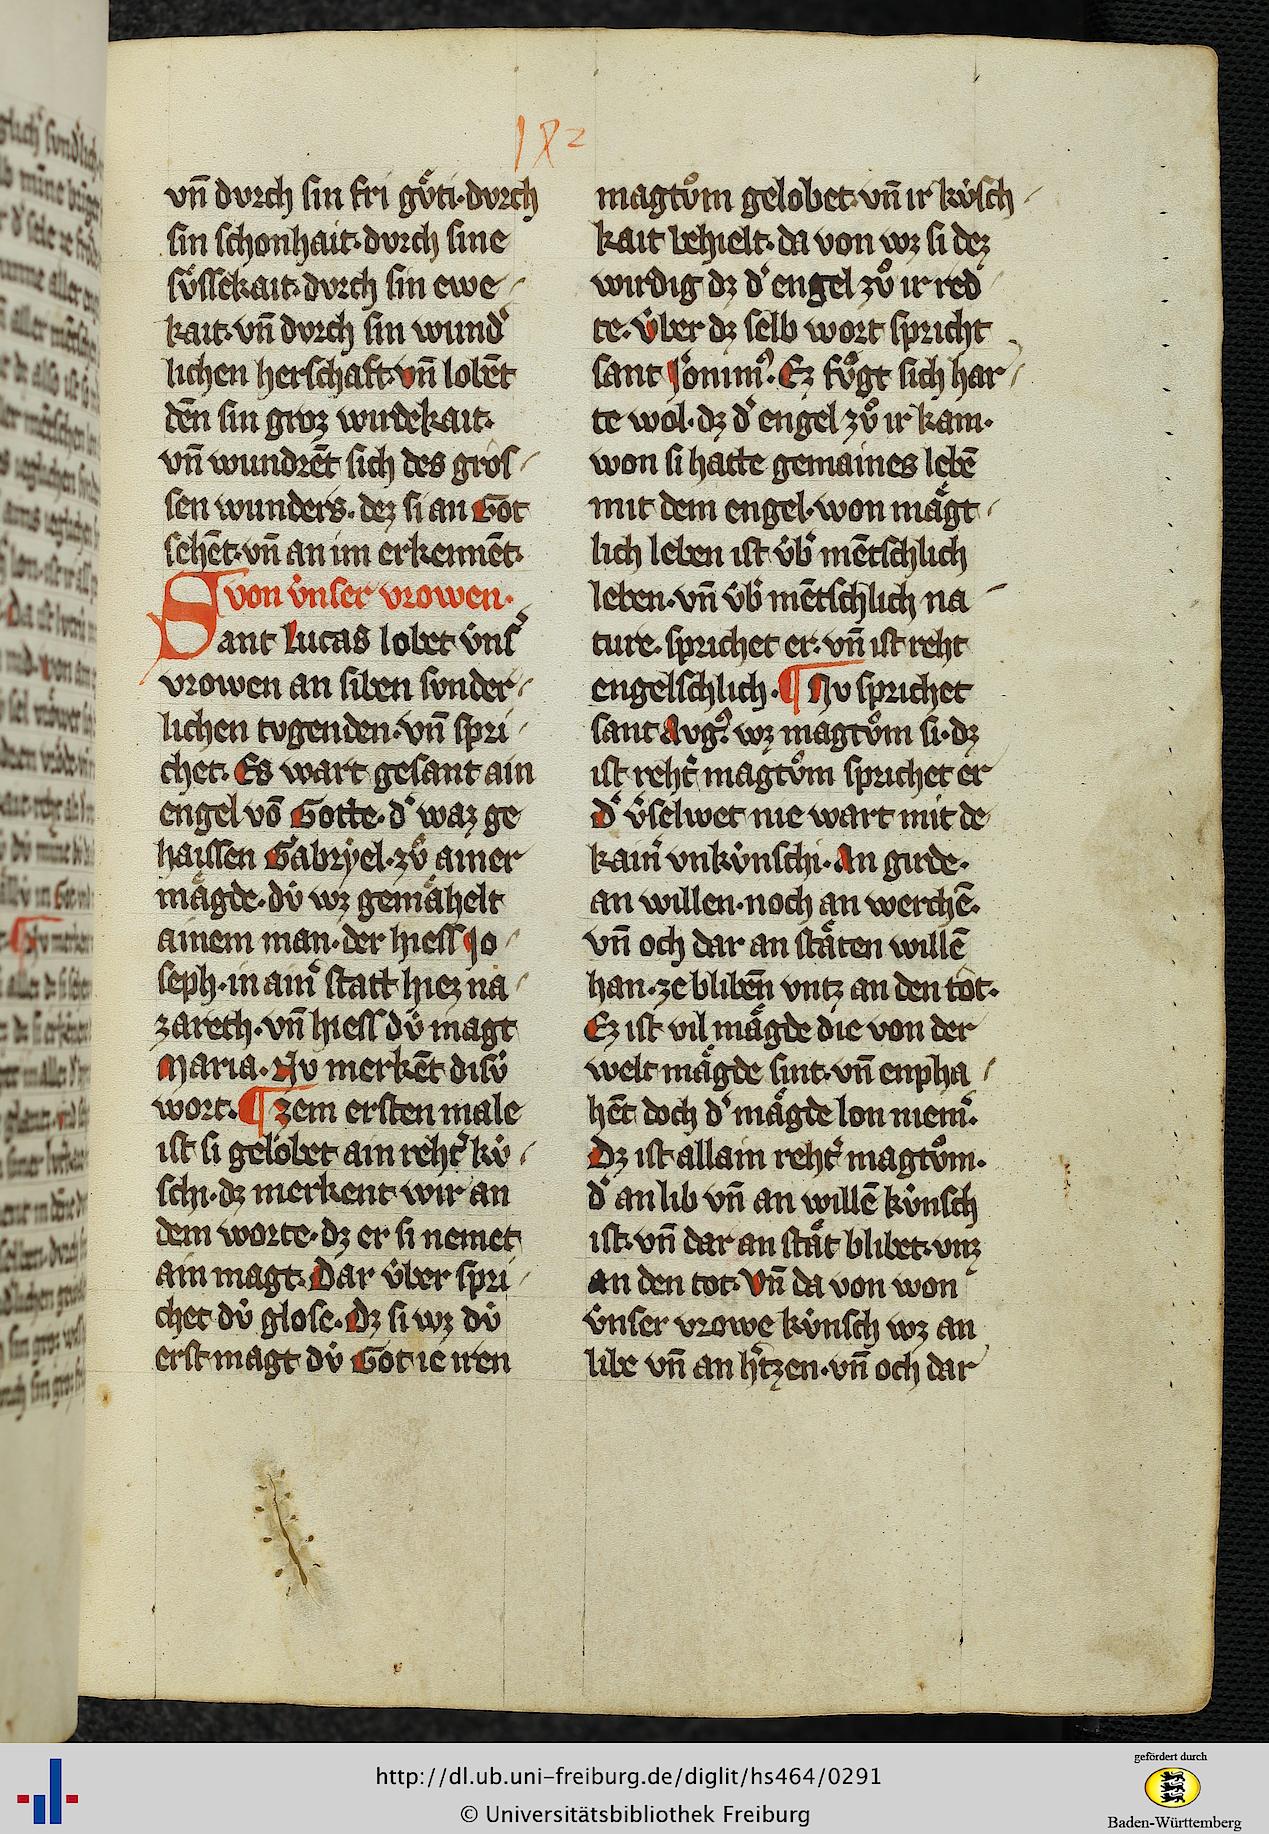 182
vn̄ dvrch sin fri gv̊ti·dvrch
sin schonhait·dvrch sine
sv̊ssekait·dvrch sin ewe
kait·vn̄ dvrch sin wund͛
lichen herschaft·vn̄ lobēt
dēn sin groz wirdekait·
vn̄ wundrēt sich des gros
sen wunders·dez si an Got
sehēt·vn̄ an im erkennēt·
von v̇nser vrowen·
Sant Lucas lobet v̇ns͛
vrowen an siben svnder
lichen tvgenden·vn̄ spri
chet·Es wart gesant ain
engel vō Gotte·d͛ waz ge
haissen Gabryel·zv̊ ainer
mägde·dv̇ wz gemähelt
ainem man·der hiess Jo
seph·in ain͛ statt hiez na
zareth·vn̄ hiess dv̇ magt
Maria·Nv merkēt disv̇
wort·¶ zem ersten male
ist si gelobet ain reht͛ kv̇
schi·dz merkent wir an
dem worte·dz er si nemet
ain magt·Dar v̇ber spri
chet dv̇ glose·Dz si wz dv̇
erst magt dv̇ Got ie iren
magtv̊m gelobet·vn̄ ir kv̇sch
kait behielt·da von wz si dez
wirdig dz d͛ engel zv̊ ir red
te·v̇ber dz selb wort spricht
sant Jonim͛·Ez fv̊gt sich har
te wol·dz d͛ engel zv̊ ir kam·
won si hatte gemaines lebē
mit dem engel·won mägt
lich leben ist v̇b͛ mētschlich
leben·vn̄ v̇b͛ mētschlich na
ture·sprichet er·vn̄ ist reht
engelschlich·¶ Nv sprichet
sant Avg͛·wz magtv̊m si·dz
ist reht͛ magtv̊m sprichet er
d͛ v͛selwet nie wart mit de
kain͛ vnkv̇nschi·An girde·
an willen·noch an werchē·
vn̄ och dar an stäten willē
han·ze blibēn vntz an den tot·
Ez ist vil mägde die von der
welt mägde sint·vn̄ enpha
hēt doch d͛ mägde lon niem͛·
Dz ist allain reht͛ magtv̊m·
d͛ an lib vn̄ an willē kv̇nsch
ist·vn̄ dar an stät blibet·vnz
an den tot·Vn̄ da von won
v̇nser vrowe kv̇nsch wz an
libe vn̄ an h͛tzen·vn̄ och dar
http://dl.ub.uni-freiburg.de/diglit/hs464/0291
© Universitätsbibliothek Freiburg
gefördert durch
Baden-Württemberg